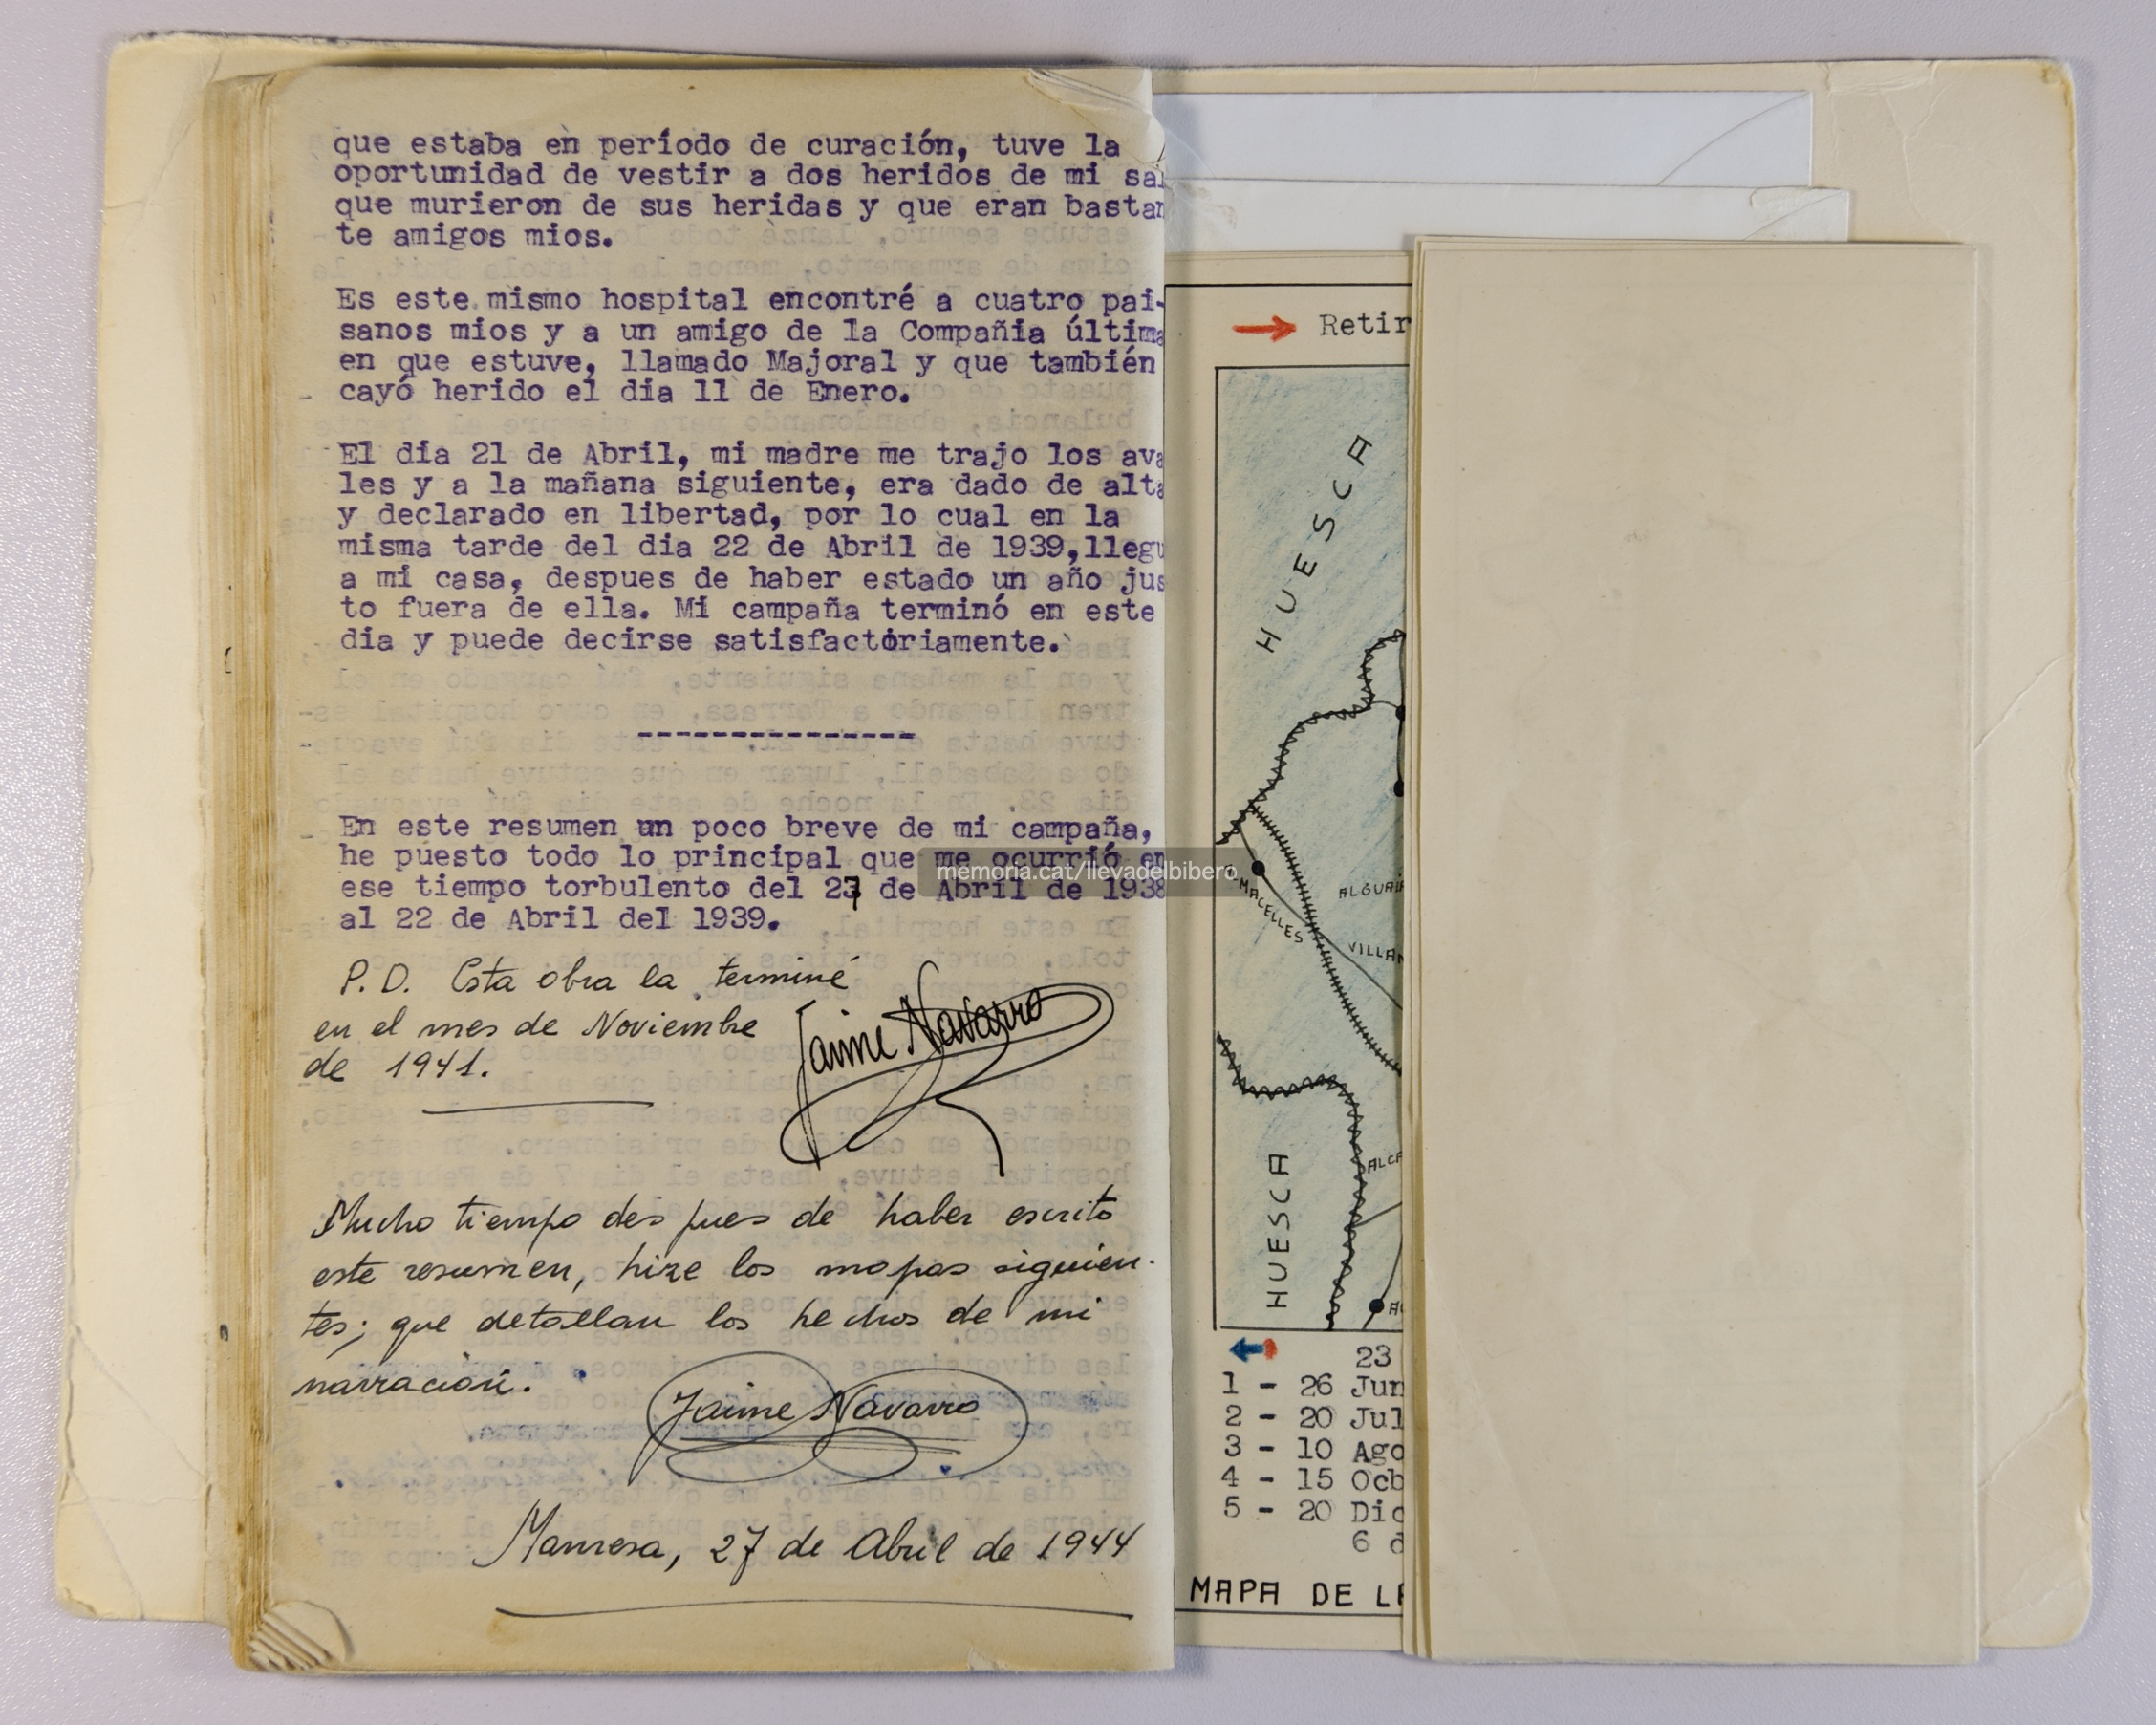 que estaba en período de curación, tuve la
oportunidad de vestir a dos heridos de mi sa
que murieron de sus heridas y que eran bastan
te amigos mios.
Es este mismo hospital encontré a cuatro pai-
sanos mios y a un amigo de la Compañia última
en que estuve, llamado Majoral y que también
cayó herido el dia 11 de Enero.
El dia 21 de Abril, mi madre me trajo los ava
les y a la mañana siguiente, era dado de alta
y declarado en libertad, por lo cual en la
misma tarde del dia 22 de Abril de 1939,llegu
a mi casa, despues de haber estado un año jus
to fuera de ella. Mi campaña terminó en este
dia y puede decirse satisfactoriamente.
---------------
En este resumen un poco breve de mi campaña,
he puesto todo lo principal que me ocurrió en
ese tiempo torbulento del 27 de Abril de 1938
al 22 de Abril del 1939.
P.D. Esta obra la terminé
en el mes de Noviembre
de 1941.
Jaime Navarro
Mucho tiempo despues de haber escrito
este resumen, hize los mapas siguien-
tes; que detallan los hechos de mi
narración.
Jaime Navarro
Manresa, 27 de Abril de 1944
memoria.cat/llevadelbibero
Retir
HUESCA
MACELLES
ALGUAI
VILLAN
HUESCA
ALCA
23
1 - 26 Jun
2 - 20 Jul
3 - 10 Ago
4 - 15 Ocb
5 - 20 Dic
6 d
MAPA DE LA